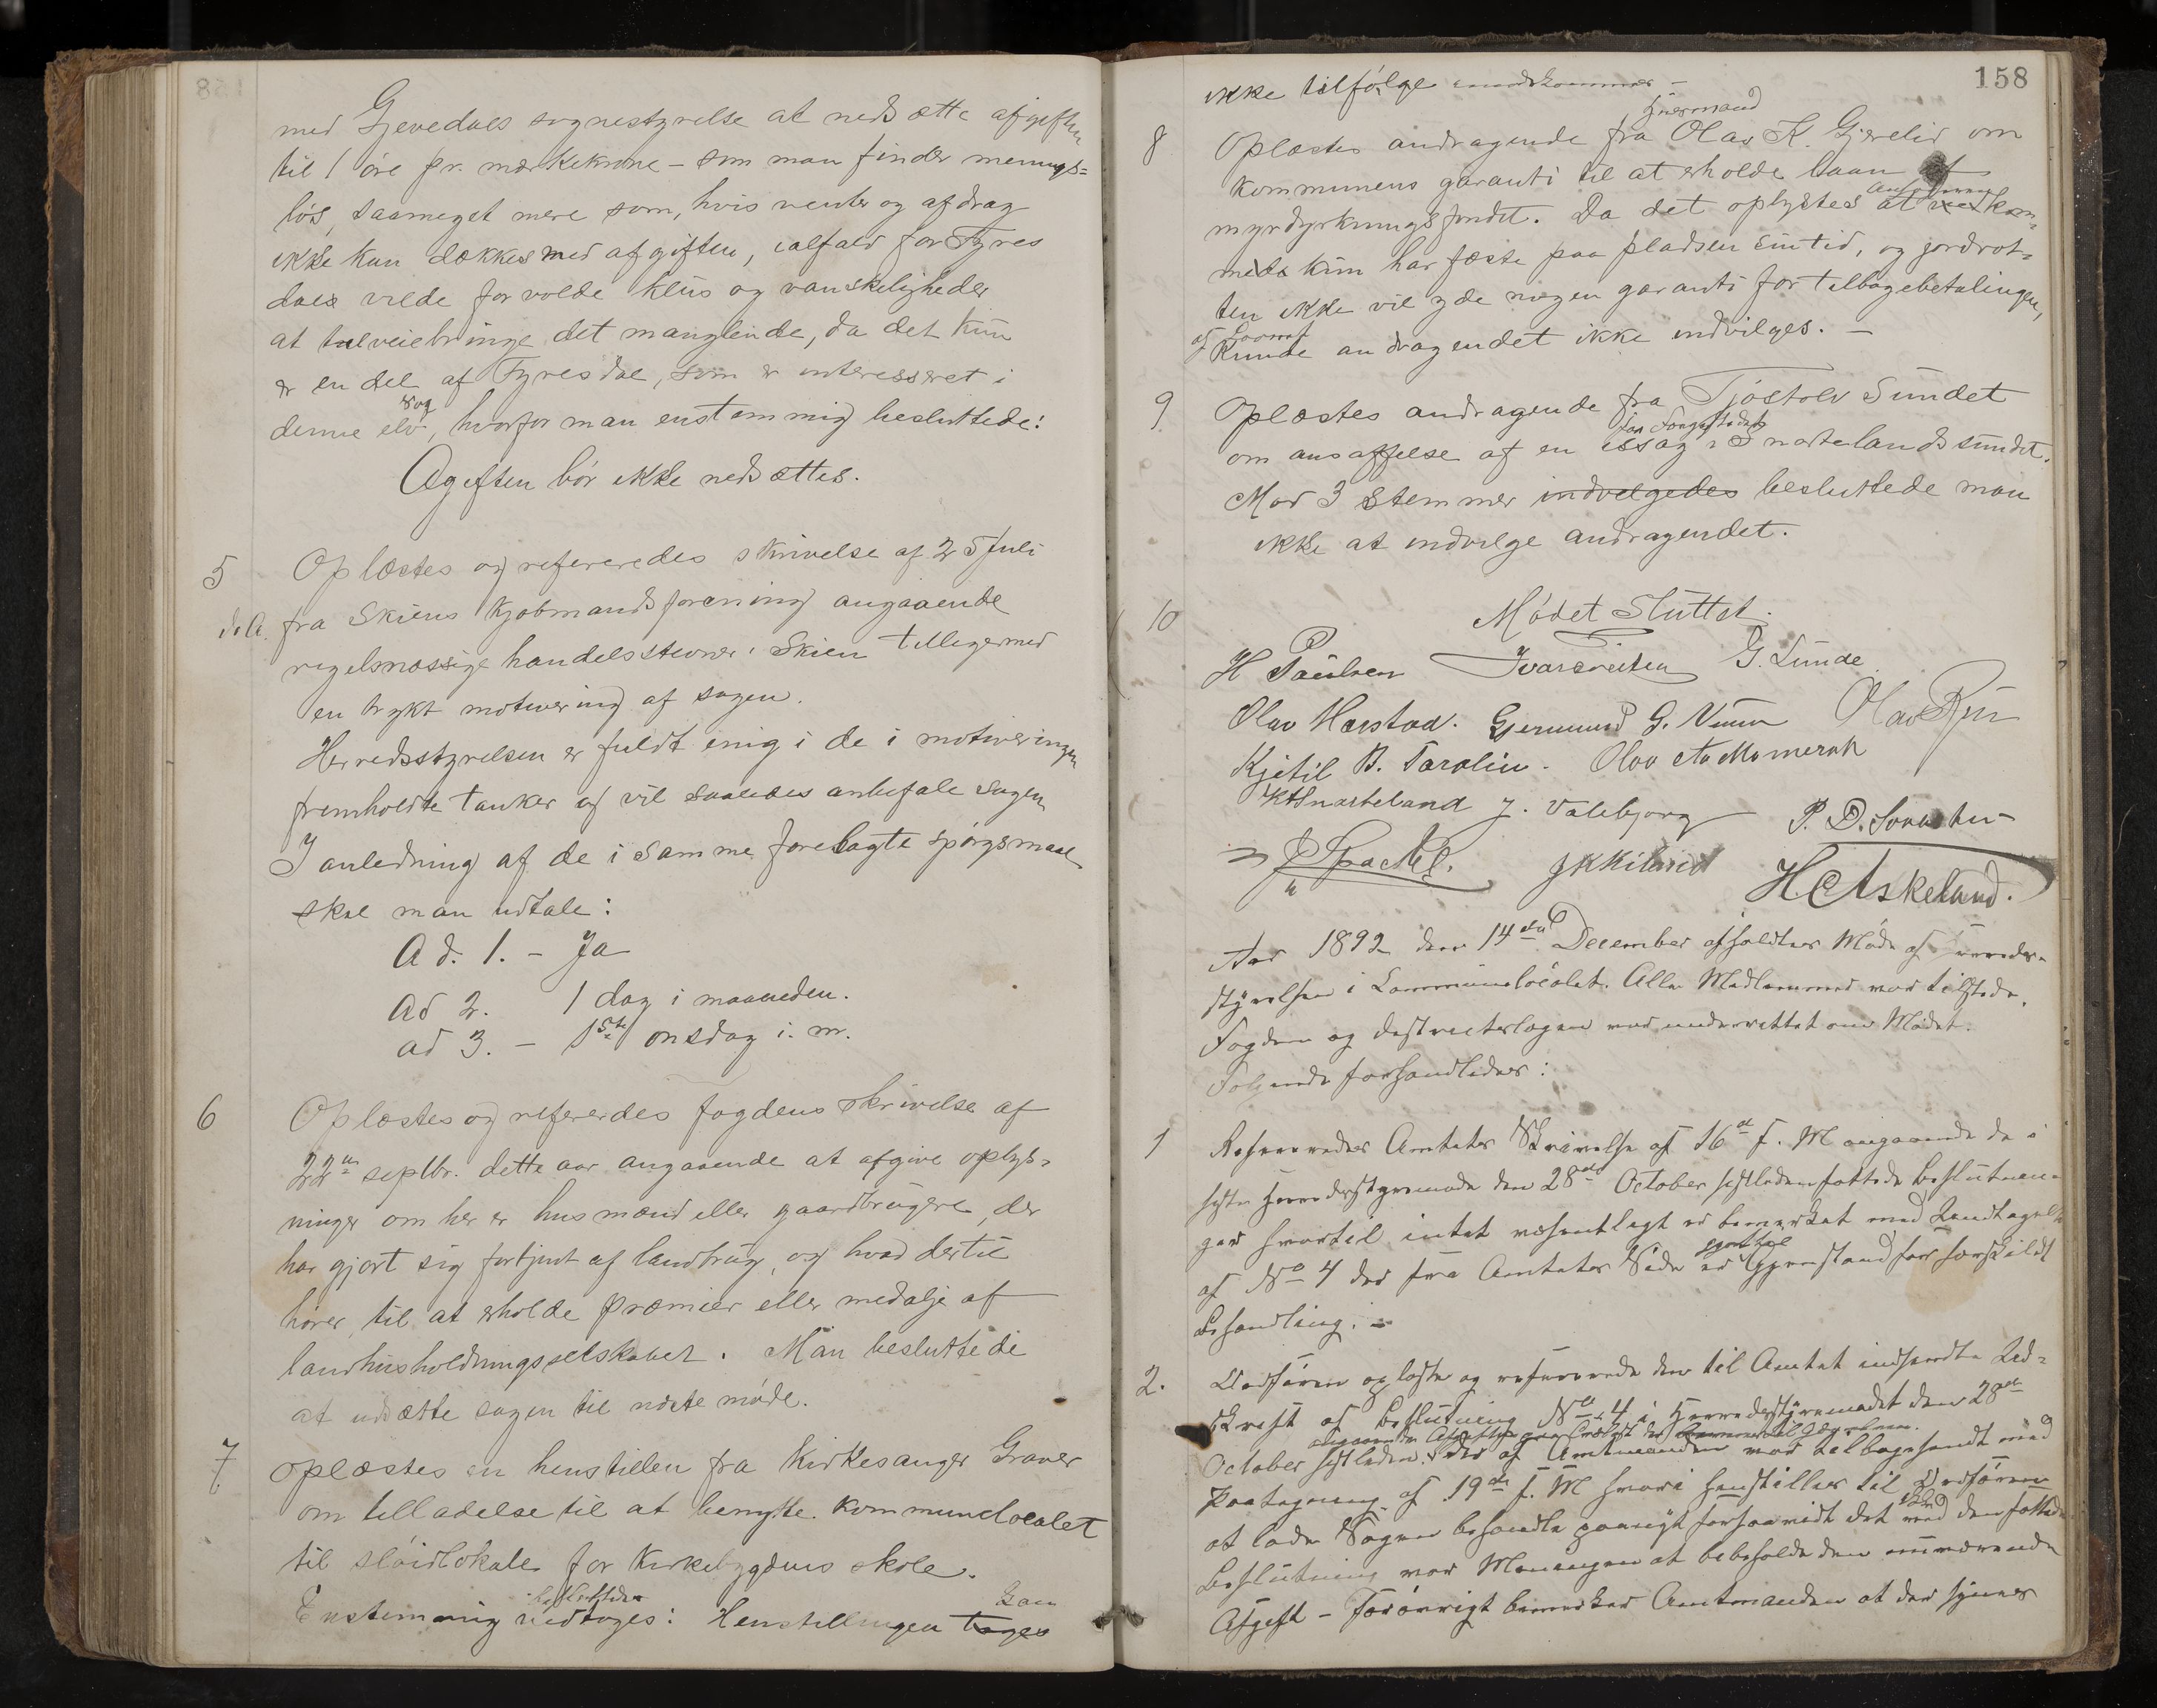 med Gjevedals sognestyrelse at nedsætte afgiften
til 1 öre pr. mærkekrone – som man finder menings=
lös, saameget mere som, hvis renter og afdrag
ikke kan dækkes med afgiften, ialfald for Tyres
dals vilde forvolde klus og vanskeligheder
at tilveiebringe det manglende, da det kun
er en del af Tyresdal, som er interesseret i
denne elv, hvorfor man enstemmig besluttede:
sag
Agiften bör ikke nedsættes.
5 Oplæstes og refereredes skrivelse af 25 Juli
d. A. fra Skiens Kjøbmandsforening angaaende
regelmæssige handelsstevner i Skien tilligemed
en trykt motivering af sagen.
Herredsstyrelsen er fuldt enig i de i motiveringen
fremholdte tanker og vil saaledes anbefale sagen
I anledning af de i samme forelagte spörgsmaal
skal man udtale:
Ad. 1. – Ja
Ad 2. 1 dag i maaneden.
ad 3. – 1ste onsdag i m.
6 Oplæstes og refereredes fogdens skrivelse af
22de septbr. dette aar angaaende at afgive oplys=
ninger om her er husmænd eller gaardbrugere, der
har gjort sig fortjent af landbrug, og hvad dertil
hörer, til at erholde præmier eller medalje af
landhusholdningsselskabet. Man besluttede
at udsætte sagen til næste möde.
7 Oplæstes en henstillen fra Kirkesanger Graver
om tilladelse til at benytte kommunelocalet
til slöidlokale for Kirkebygdens skole.
besluttedes Kan
Enstemmig vedtoges: Henstillingen tages
158
ikke tilfölge imødekommes –
Husmand
8 Oplæstes andragende fra Olav K. Gjerelid om
kommunens garanti til at erholde laan af
myrdyrkningsfondet. Da det oplystes at vedkom=
ansögeren
mede kun har fæste paa pladsen sin tid, og jordrot=
ten ikke vil yde nogen garanti for tilbagebetalingen,
af Laanet
kunde andragendet ikke indvilges. –
9 Oplæstes andragende fra Tjöstolv Sundet
om ansaffelse af en issag i Snartelandssundet.
Mod 3 stemmer indvelgedes besluttede man
ikke at indvilge andragendet.
10 Mödet Sluttet.
H Paulsen Ivarsveiten G. Lunde
Olav Harstad. Gjermund G. Olav
Kjetil B. Taralin. Olav
KHSnarteland J. Valebjorg P. D.
JKKilarid HCAskeland.
Aar 1892 den 14de December afholdtes Möde af Herreds=
styrelsen i Communelocalet. Alle Medlemmer var tilstede.
Fogden og Districtslægen var underrettet om Mödet.
Følgende forhandledes:
1 Refereredes Amtets Skrivelse af 16de f. M angaaende de i
sidste Herredsstyremøde den 28de October sidstleden fattede Beslutnin=
ger hvortil intet væsentligt er bemerket med Undtagelse
af No 4 der fra Amtets Side er Gjenstand for særskildt
Behandling. –
2. Ordföreren oplæste og refererede den til Amtet indsendte Ud=
skrift af Beslutning No 4 i Herredsstyremødet den 28de
October sidstleden, der af Amtmanden var tilbagesendt med
Paategning af 19de f. M hvori henstilles til Ordföreren
at lade Sagen behandle paanyt forsaavidt det med den fattede
Beslutning var Meningen at bebeholde den nuværende
Afgift – Forövrigt bemerker Amtmanden at der synes